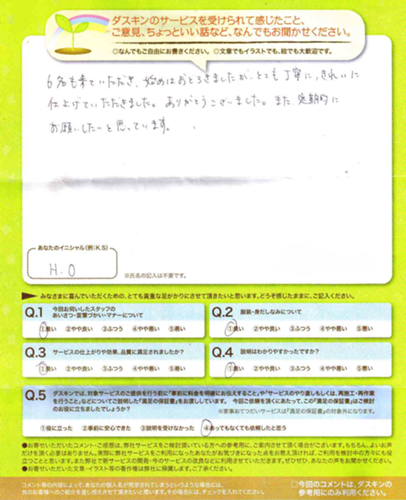 ダスキンのサービスを受けられて感じたこと、
ご意見、ちょっといい話など、なんでもお聞かせください。
◎なんでもご自由にお書きください。◎文章でもイラストでも、絵でも大歓迎です。
6名も来ていただき、始めはおどろきましたが、とても丁寧に、きれいに
仕上げていただきました。ありがとうございました。また定期的に
お願いしたいと思っています。
あなたのイニシャル(例:K.S)
H.O
※氏名の記入は不要です。
▶みなさまに喜んでいただくための、とても貴重な足がかりにさせて頂きたいと思います。どうぞ感じたままに、ご記入ください。
Q.1 今回お伺いしたスタッフの
あいさつ・言葉づかい・マナーについて
①良い ②やや良い ③ふつう ④やや悪い ⑤悪い
Q.2 服装・身だしなみについて
①良い ②やや良い ③ふつう ④やや悪い ⑤悪い
Q.3 サービスの仕上がりや効果、品質に満足されましたか?
①良い ②やや良い ③ふつう ④やや悪い ⑤悪い
Q.4 説明はわかりやすかったですか?
①良い ②やや良い ③ふつう ④やや悪い ⑤悪い
Q.5 ダスキンでは、対象サービスのご提供を行う前に「事前に料金を明確にお伝えすること」や「サービスのやり直しもしくは、再施工・再作業
を行うこと」などについてご説明した「満足の保証書」をお渡しています。今回ご依頼を頂くにあたって、この「満足の保証書」はご検討
のお役に立ちましたでしょうか?
※家事おてつだいサービスは「満足の保証書」の対象外になります。
①役に立った ②事前に安心できた ③説明を受けなかった ④あってもなくても依頼したと思う
●お寄せいただいたコメント・ご感想は、弊社サービスをご検討頂いている方への参考用に、ご案内させて頂く場合がございます。もちろん、よいお声
だけを頂く必要はありません。実際に弊社サービスをご利用になったあなたがお気づきになった点をお教え頂ければ、ご利用を検討中の方々にも役
立つことと思います。また弊社で新サービスの開発・今のサービスの改良などに利用させていただきます。ぜひぜひ、あなたの声をお聞かせください。
●お寄せいただいた文章・イラスト等の著作権は弊社に帰属します。ご了承ください。
□今回のコメントは、ダスキンの
参考用にのみ利用ください。